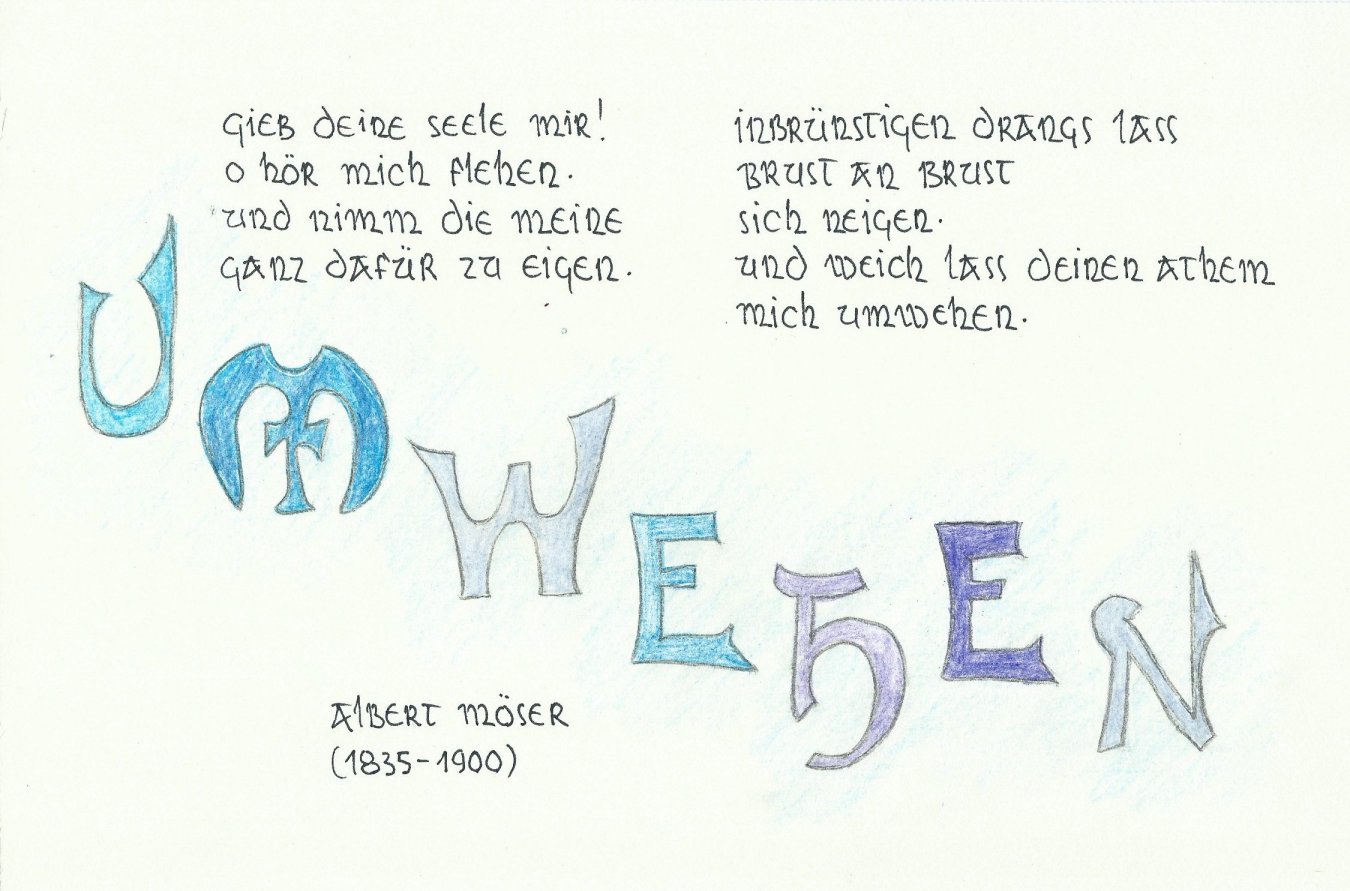 gieb deine seele mir!
o hör mich flehen.
und nimm die meine
ganz dafür zu eigen.
inbrünstigen drangs lass
brust an brust
sich neigen.
und weich lass deinen athem
mich umwehen.
UMWEHEN
albert möser
(1835-1900)